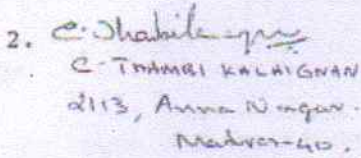 2. 
C. THAMBI KALAIGNAN
2113, Anna Nagar.
Madras-40.